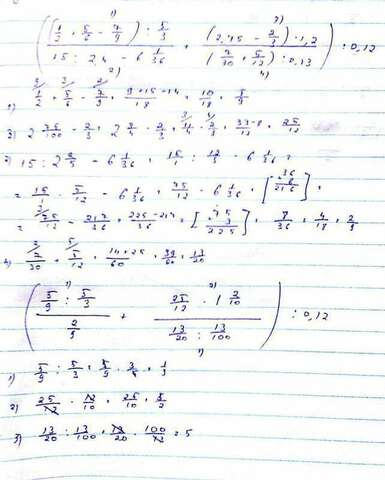 1) 2)
((1/2 + 5/6 - 7/9) : 5/3) / (15 : 2,4 - 6 1/36) + ((2,75 - 2/3) · 1,2) / ((7/30 + 5/12) : 0,13) : 0,12
2) 4)
1) 1/2 + 5/6 - 7/9 = 9+15-14/18 = 10/18 = 5/9
3) 2 75/100 - 2/3 = 2 3/4 - 2/3 = 11/4 - 2/3 = 33-8/12 = 25/12
2) 15 : 2 2/5 - 6 1/36 = 15/1 : 12/5 - 6 1/36 =
= 15/1 · 5/12 - 6 1/36 = 75/12 - 6 1/36 = [36 6 216] =
= 75/12 - 217/36 = 225-217/36 = [75 3 225] = 8/36 = 4/18 = 2/9
4) 7/30 + 5/12 = 14+25/60 = 39/60 = 13/20
1) 2)
((5/9 : 5/3) / (2/9) + (25/12 · 1 2/10) / (13/20 : 13/100)) : 0,12
1) 5/9 : 5/3 = 5/9 · 3/5 = 1/3
2) 25/12 · 12/10 = 25/10 = 5/2
3) 13/20 : 13/100 = 13/20 · 100/13 = 5